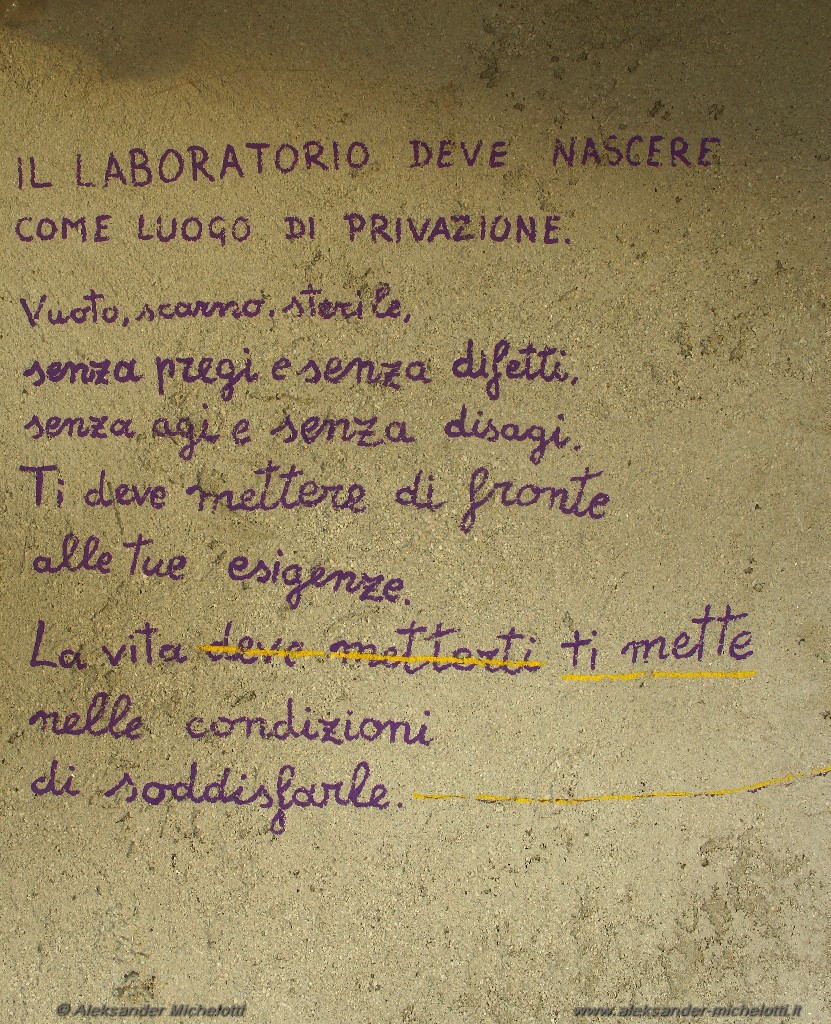 IL LABORATORIO DEVE NASCERE
COME LUOGO DI PRIVAZIONE.
Vuoto, scarno. sterile,
senza pregi e senza difetti.
senza agi e senza disagi.
Ti deve mettere di fronte
alle tue esigenze.
La vita deve metterti ti mette
nelle condizioni
di soddisfarle.
© Aleksander Michelotti www.aleksander-michelotti.it